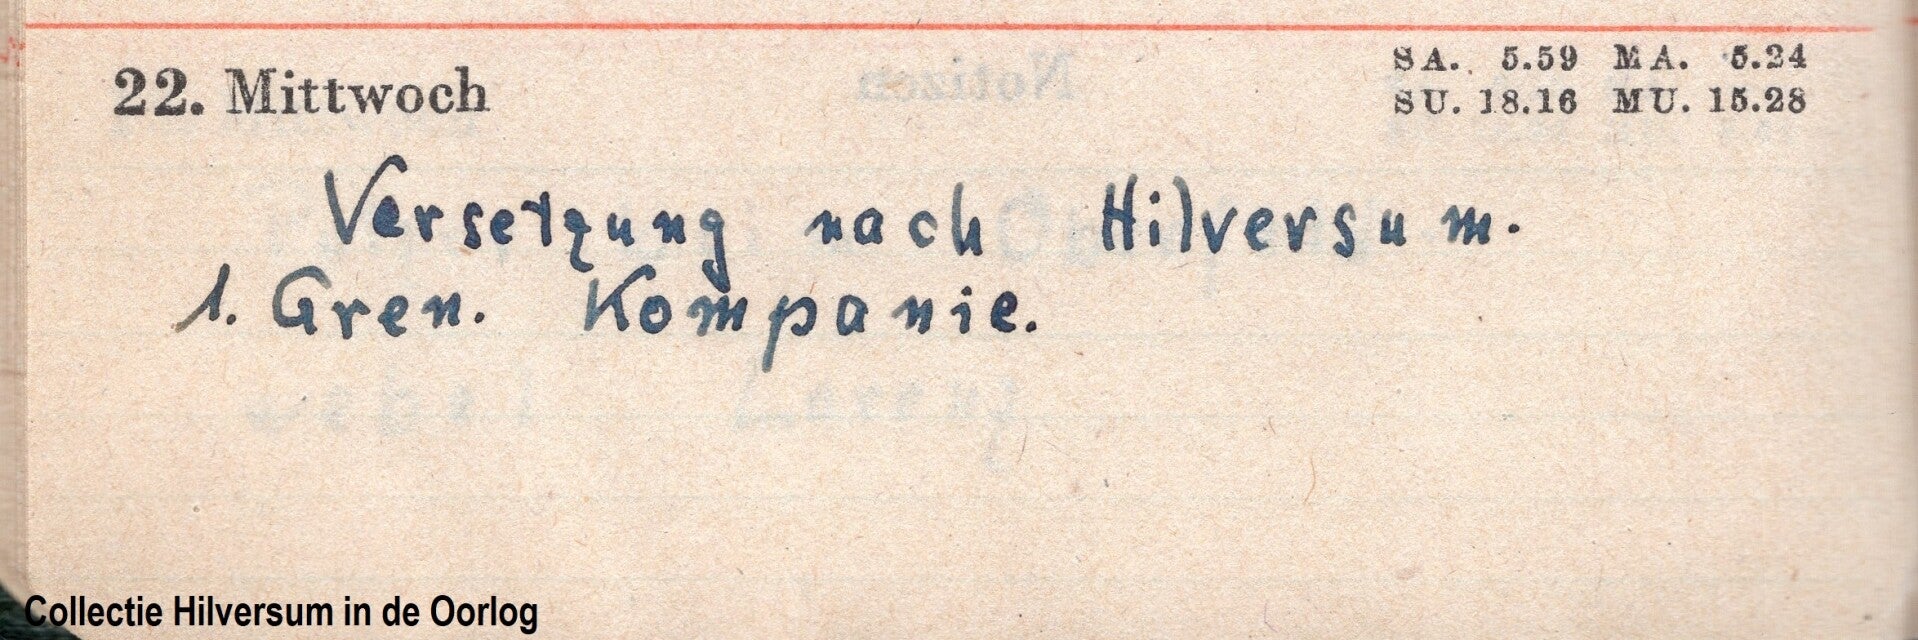 22. Mittwoch
SA. 5.59 MA. 5.24
SU. 18.16 MU. 15.28
Versetzung nach Hilversum.
1. Gren. Kompanie.
Collectie Hilversum in de Oorlog